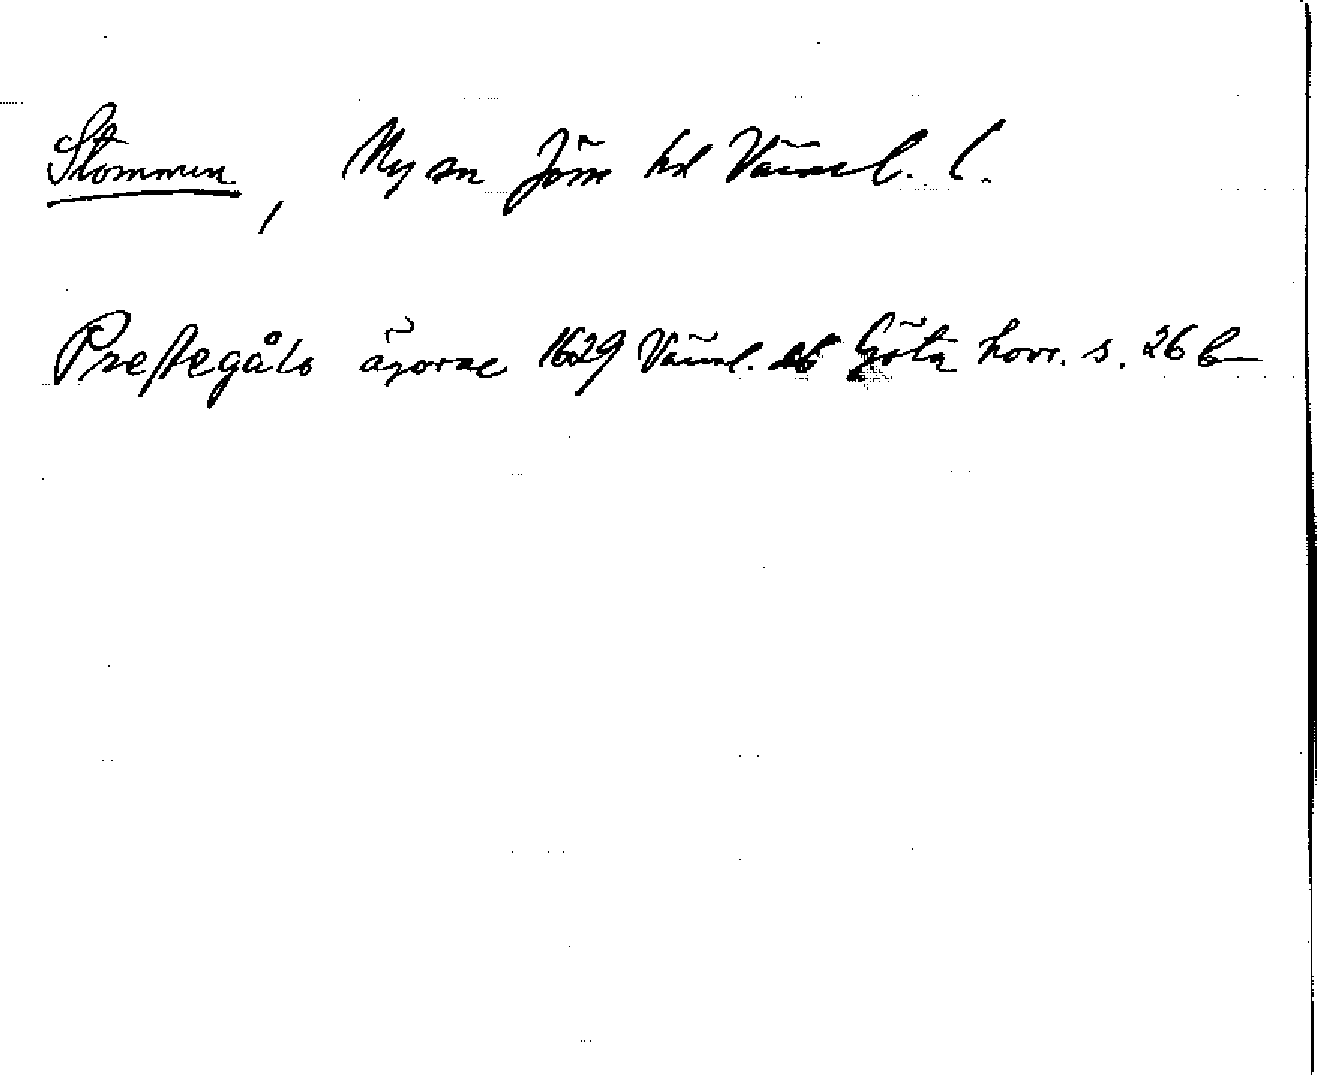 Stommen, Ny sn Jösse hd Värml. l.
Prestegåls ägorne 1629 Värml. db Göta hovr. s. 26 b